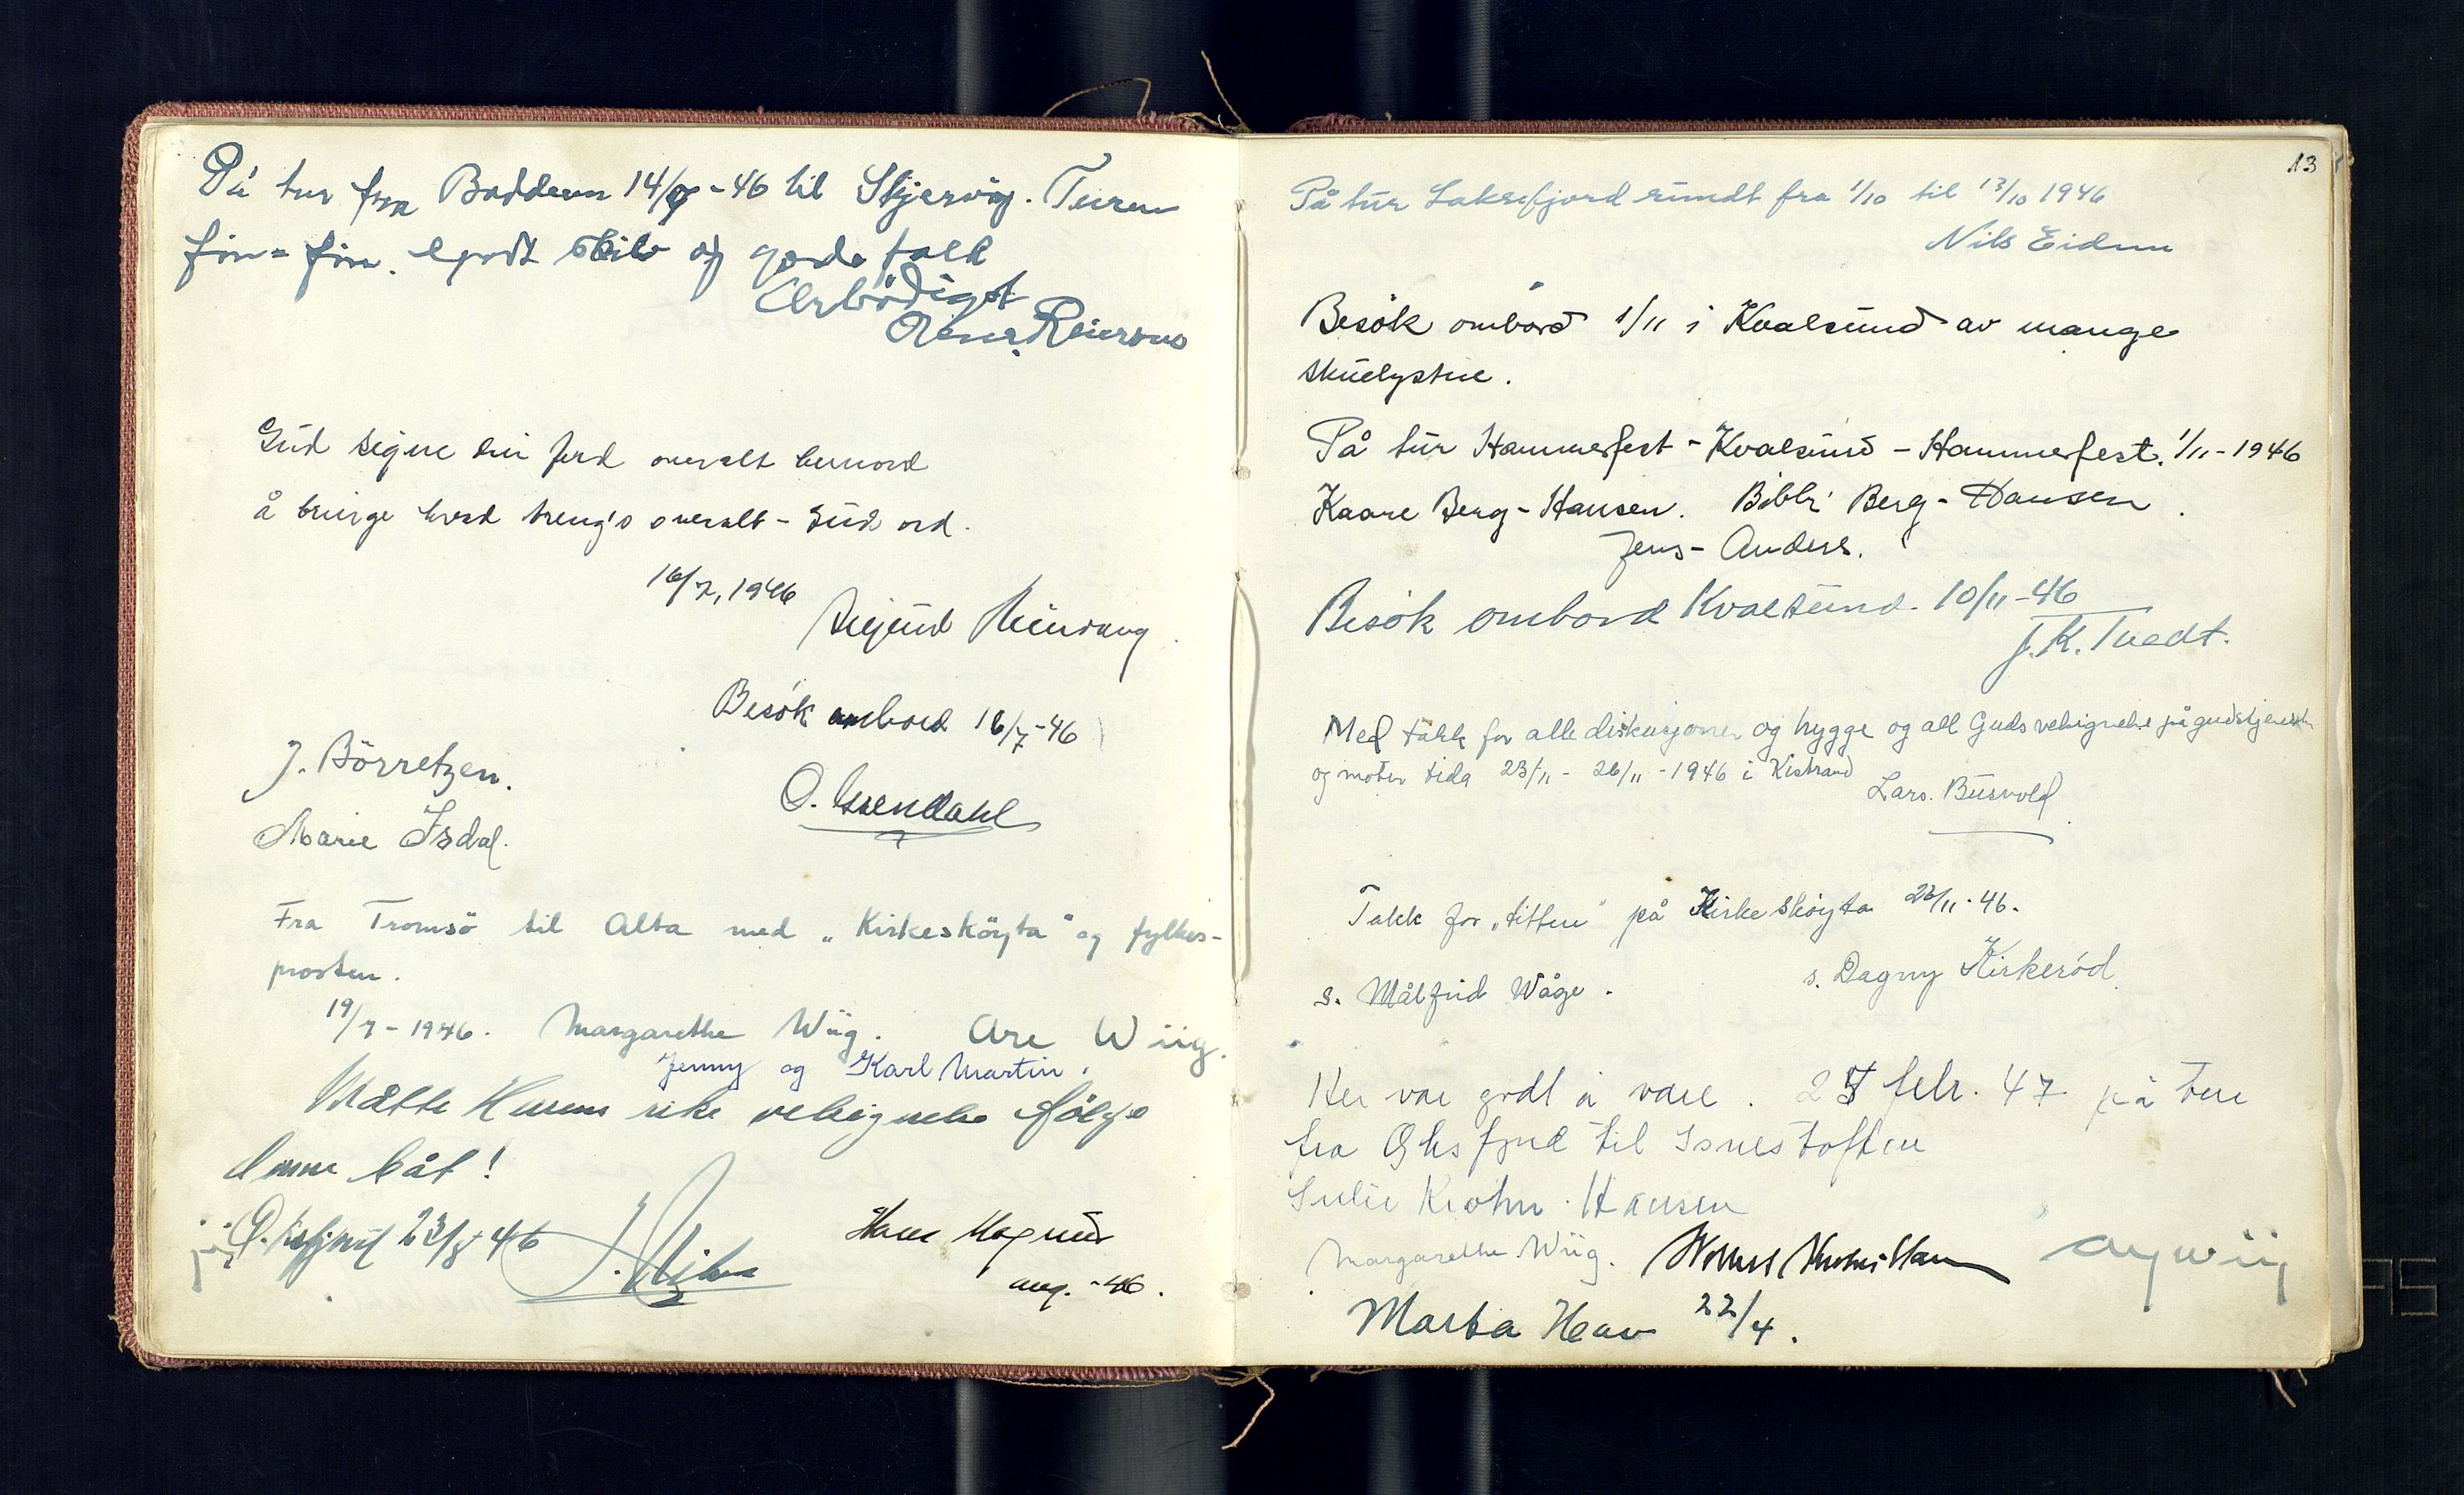 På tur fra Badderen 14/7-46 til Skjervöy. Turen
fin-fin. Godt skib og gode folk
Erbödigst
Gud signe din ferd overalt her nord
å bringe hvad treng's overalt - Guds ord.
16/7, 1946
Sigurd
Besök ombord 16/7-46
J. Börretzen.
O. Grendahl
Marie Isdal.
Fra Tromsö til Alta med „Kirkesköyta" og fylkes-
prosten.
19/7-1946. Margarethe Wiig. Are Wiig.
Jenny og Karl Martin.
Måtte Herrens rike velsignelse fölge
denne båt!
Öksfjord 23/8 46
Hans Magnus
aug. -46.
13
På tur Laksefjord rundt fra 1/10 til 13/10 1946
Nils Eidnes
Besök ombord 1/11 i Kvalsund av mange
skuelystne.
På tur Hammerfest - Kvalsund - Hammerfest. 1/11-1946
Kaare Berg-Hansen. Bibbi Berg-Hansen.
Jens-Anders.
Besök ombord Kvalsund. 10/11-46
J.K. Tvedt.
Med takk for alle diskusjoner og hygge og all Guds velsignelse på gudstjenester
og möter tida 23/11 - 26/11 - 1946 i Kistrand
Lars. Busvold
Takk for „titten" på Kirkeskøyta 26/11-46.
s. Målfrid Wåge.
s. Dagny Kirkeröd.
Her var godt å være. 25 febr. 47 på tur
fra Öksfjord til Isnestoften
Julie Krohn-Hansen
Margarethe Wiig. Wollert Krohn-Hansen
Marta 22/4.